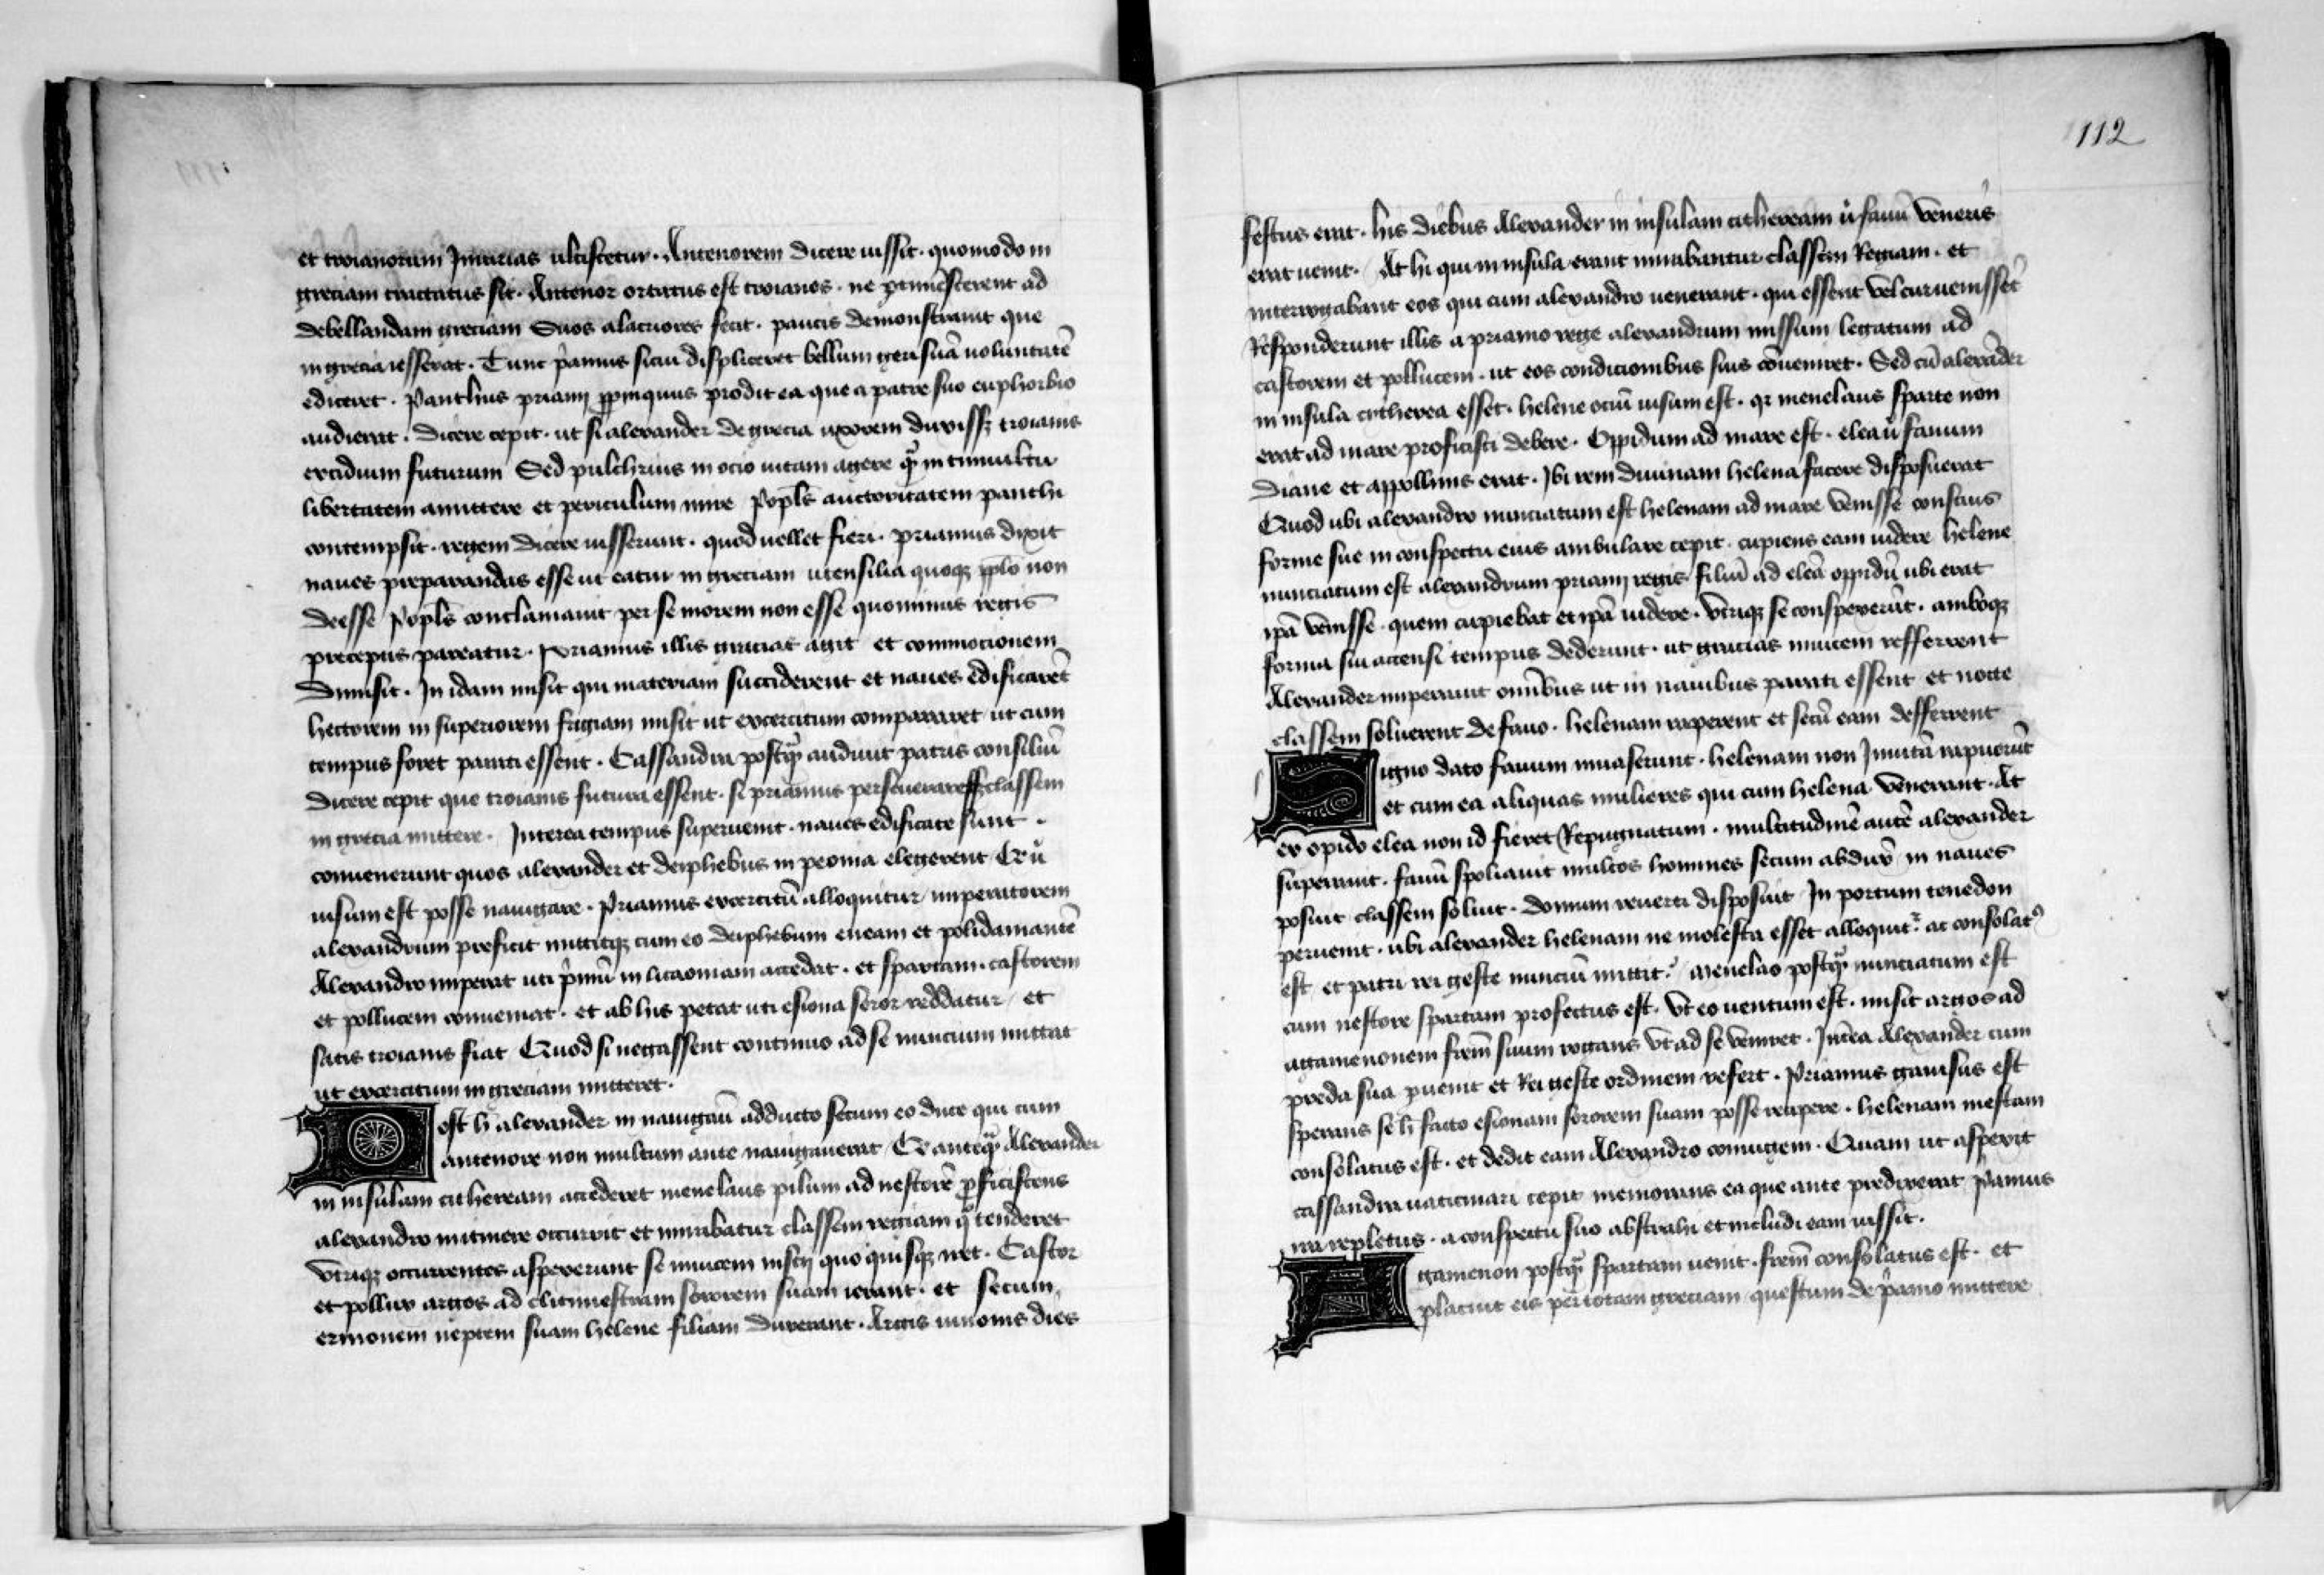 et troianorum Iniurias ulcisceretur. Antenorem dicere iussit. quomodo in
greciam tractatus sit. Antenor ortatus est troianos. ne ꝑtimescerent ad
debellandam greciam Suos alacriores fecit. paucis demonstrauit que
in grecia iesserat. Tunc p̃amus sicui displiceret bellum geri suã uoluntatẽ
ediceret. Panthus priamj ꝓpinquus prodit ea que a patre suo euphorbio
audierat. dicere cepit. ut si alexander de grecia uxorem duxissꝫ troianis
excidium futurum Sed pulchrius in ocio uitam agere q̃ȝ in tumultu
libertatem amittere et periculum inire Popl̃s auctoritatem panthi
contempsit. regem dicere iusserunt. quod uellet fieri. priamus dixit
naues preparandas esse ut eatur in greciam utensilia quoqꝫ pp̃lo non
deesse Popl̃s conclamauit per se morem non esse quominus regis
preceptis pareatur. Priamus illis gracias agit et commocionem
dimisit. In idam misit qui materiam succiderent et naues edificarẽt
hectorem in superiorem frigiam misit ut exercitum compararet ut cum
tempus foret parati essent. Cassandra postq̃ȝ audiuit patris consiliũ
dicere cepit que troianis futura essent. si priamus perseueraressꝫ classem
in grecia mittere. Interea tempus superuenit. naues edificate sunt.
conuenerunt quos alexander et deiphebus in peonia elegerent Et ů
uisum est posse nauigare. Priamus exercitũ alloquitur imperatorem
alexandrum preficit mittitqꝫ cum eo deiphebum eneam et polidamantẽ
Alexandro imperat uti p̃mũ in licaoniam accedat. et spartam. castorem
et pollucem conueniat. et ab his petat uti esiona soror reddatur et
satis troianis fiat Quod si negassent continuo ad se nuncium mittat
ut exercitum in greciam mitteret.
Post h̃ alexander in nauigaũ adducto secum eo duce qui cum
antenore non multum ante nauigauerat Et anteq̃ȝ Alexander
in insulam cithеream accederet menelaus pilum ad nestorẽ ꝓficiscens
alexandro initinere occurrit et mirabatur classem regiam q̃ tenderet
Vtriqꝫ occurrentes aspexerunt se inuicem inscij quo quisqꝫ iret. Castor
et pollux argos ad clitimestram sororem suam ierant. et secum
ermonem neptem suam helene filiam duxerant. Argis iunonis dies
112
festus erat. his diebus Alexander in insulam citheream ů fanũ veneris
erat uenit. At hi qui in insula erant mirabantur classem Regiam. et
interrogabant eos qui cum alexandro uenerant. qui essent vel cur uenissẽt
Responderunt illis a priamo rege alexandrum missum legatum ad
castorem et pollucem. ut eos condicionibus suis cõueniret. Sed cũ alexãder
in insula citherea esset. helene ociũ uisum est. qr menelaus sparte non
erat ad mare proficisci debere. Oppidum ad mare est. elea ů fanum
diane et appollinis erat. Ibi rem diuinam helena facere disposuerat
Quod ubi alexandro nunciatum est helenam ad mare venisse conscius
forme sue in conspectu eius ambulare cepit. cupiens eam uidere helene
nunciatum est alexandrum priamj regis filiũ ad eleã oppidũ ubi erat
ip̃a venisse. quem cupiebat et ip̃a uidere. vtriqꝫ se conspexerũt. amboqꝫ
forma sui accensi tempus dederunt. ut gracias inuicem refferrent
Alexander imperauit omĩbus ut in nauibus parati essent et nocte
classem soluerent de fano. helenam raperent et secũ eam defferrent
Signo dato fanum inuaserunt. helenam non Inuitã rapuerũt
et cum ea aliquas mulieres qui cum helena venerant. At
ex opido elea non id fieret Repugnatum. multitudinẽ autẽ alexander
superauit. fanũ spoliauit multos homines secum abduxẽ in naues
posuit classem soluit. domum reuerti disposuit In portum tenedon
peruenit. ubi alexander helenam ne molesta esset alloquit᷑ ac consolatꝰ
est et patri rei geste nunciũ mittit. Menelao postq̃ȝ nunciatum est
cum nestore spartam profectus est. Vt eo uentum est. misit argos ad
agamenonem frem̃ suum rogans vt ad se veniret. Int̃ea Alexander cum
preda sua ꝑuenit et Rei geste ordinem refert. Priamus gauisus est
sperans se h̃ facto esionam sororem suam posse recipere. helenam mestam
consolatus est. et dedit eam Alexandro coniugem. Quam ut aspexit
cassandra uaticinari cepit memorans ea que ante predixerat p̃amus
ira repletus. a conspectu suo abstrahi et includi eam iussit.
Agamenon postq̃ȝ spartam uenit. frem̃ consolatus est. et
placuit eis per totam greciam questum de p̃amo mittere